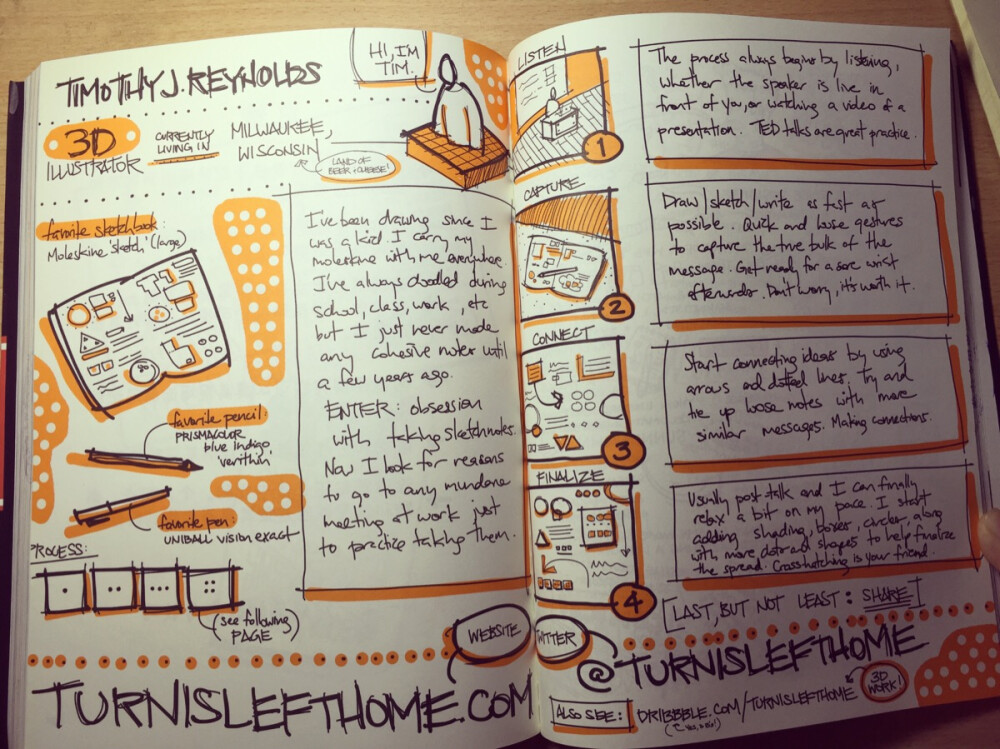 TIMOTHY J. REYNOLDS
HI, I'M
TIM.
3D
ILLUSTRATOR
CURRENTLY
LIVING IN
MILWAUKEE,
WISCONSIN
LAND OF
BEER + CHEESE!
favorite sketchbook:
Moleskine 'sketch' (large)
favorite pencil:
PRISMACOLOR
blue indigo
'verithin'
favorite pen:
UNIBALL vision exact
PROCESS:
(see following)
PAGE
I've been drawing since I
was a kid. I carry my
moleskine with me everywhere.
I've always doodled during
school, class, work, etc
but I just never made
any cohesive notes until
a few years ago.
ENTER: obsession
with taking sketchnotes.
Now I look for reasons
to go to any mundane
meeting at work just
to practice taking them.
WEBSITE
TURNISLEFTHOME.COM
LISTEN
1
The process always begins by listening,
whether the speaker is live in
front of you, or watching a video of a
presentation. TED talks are great practice.
CAPTURE
2
Draw/sketch/write as fast as
possible. Quick and loose gestures
to capture the true bulk of the
message. Get ready for a sore wrist
afterwards. Don't worry, it's worth it.
CONNECT
3
Start connecting ideas by using
arrows and dotted lines, try and
tie up loose notes with more
similar messages. Making connections.
FINALIZE
4
Usually post-talk and I can finally
relax a bit on my pace. I start
adding shading, boxes, circles, along
with more detailed shapes to help finalize
the spread. Crosshatching is your friend.
[LAST, BUT NOT LEAST: SHARE]
TWITTER
@TURNISLEFTHOME
ALSO SEE:
DRIBBBLE.COM/TURNISLEFTHOME
3D
WORK!